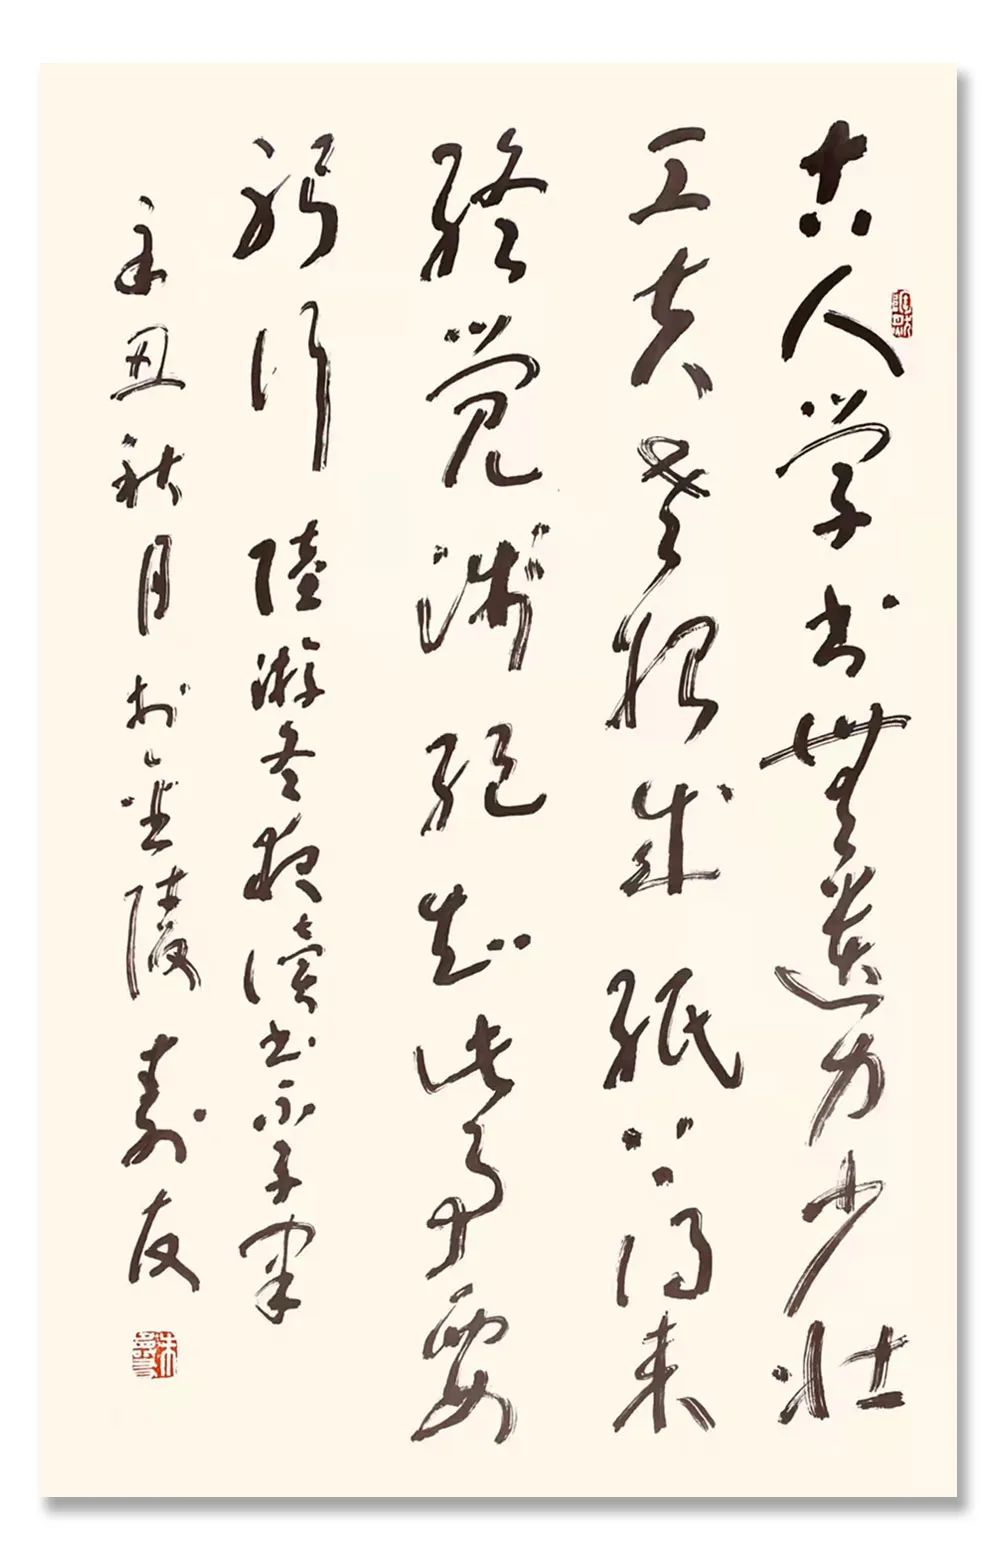 古人学书無遺力少壮
工夫老始成纸上得来
终觉浅绝知此事要
躬行 陸游冬夜读书示子聿
辛丑秋月於金陵 寿友